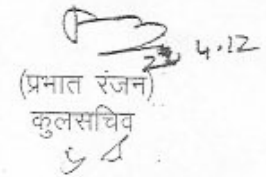 4.12
(प्रभात रंजन)
कुलसचिव